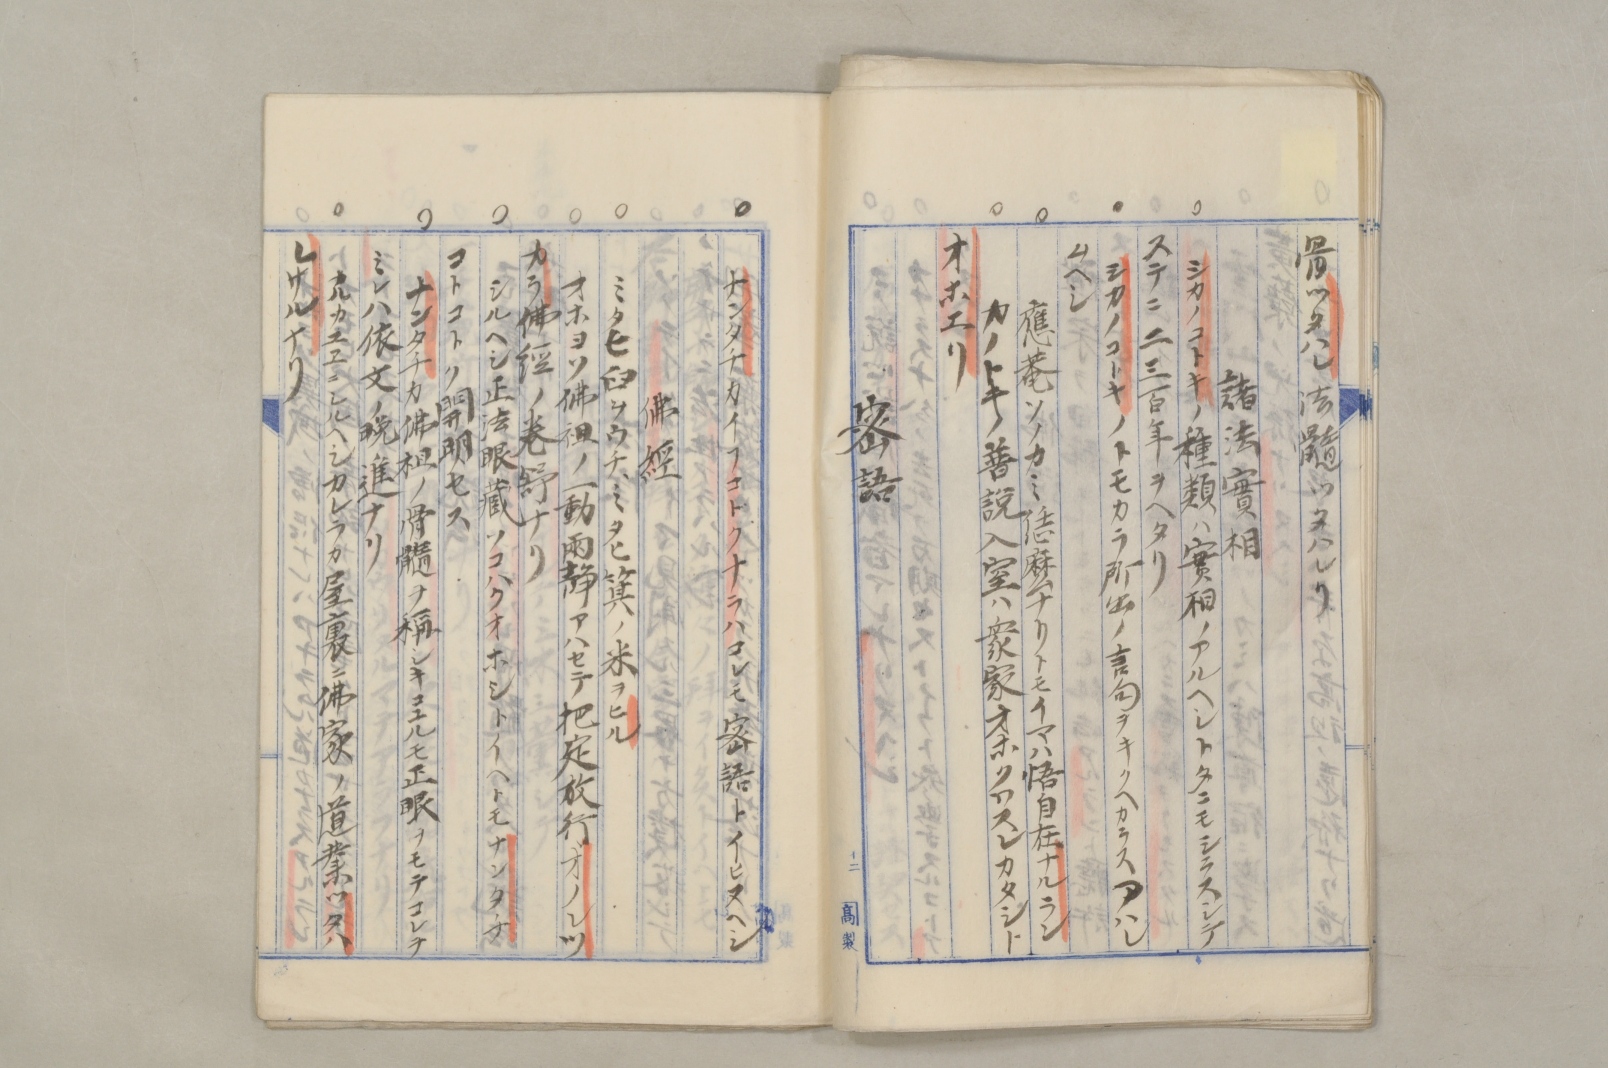 骨ツタハレ法髓ツタハレリ
諸法實相
シカノコトキノ種類ハ實相ノアルヘシトタニモシラスシテ
ステニ二三百年ヲヘタリ
シカノコトキノトモカラ所出ノ言句ヲキクヘカラスアハレ
ムヘシ
應菴ソノカミ恁麼ナリトモイマハ悟自在ナルラン
カノトキノ普説入室ハ衆家オホクワスレカタシト
オホエリ
密語
ナンタチカイフコトクナラハコレモ密語トイヒヌヘシ
佛經
ミタヒ臼ヲウチミタヒ箕ノ米ヲヒル
オホヨソ佛祖ノ一動両静アハセテ把定放行オノレツ
カラ佛經ノ卷舒ナリ
シルヘシ正法眼藏ソコハクオホシトイヘトモナンタチ
コトコトク開明セス
ナンタチカ佛祖ノ骨髓ヲ稱シキコエルモ正眼ヲモテコレヲ
ミレハ依文ノ晩進ナリ
カルカユエニシルヘシカレラカ屋裏ニ佛家ノ道業ツタハ
レサルナリ
十二
高製